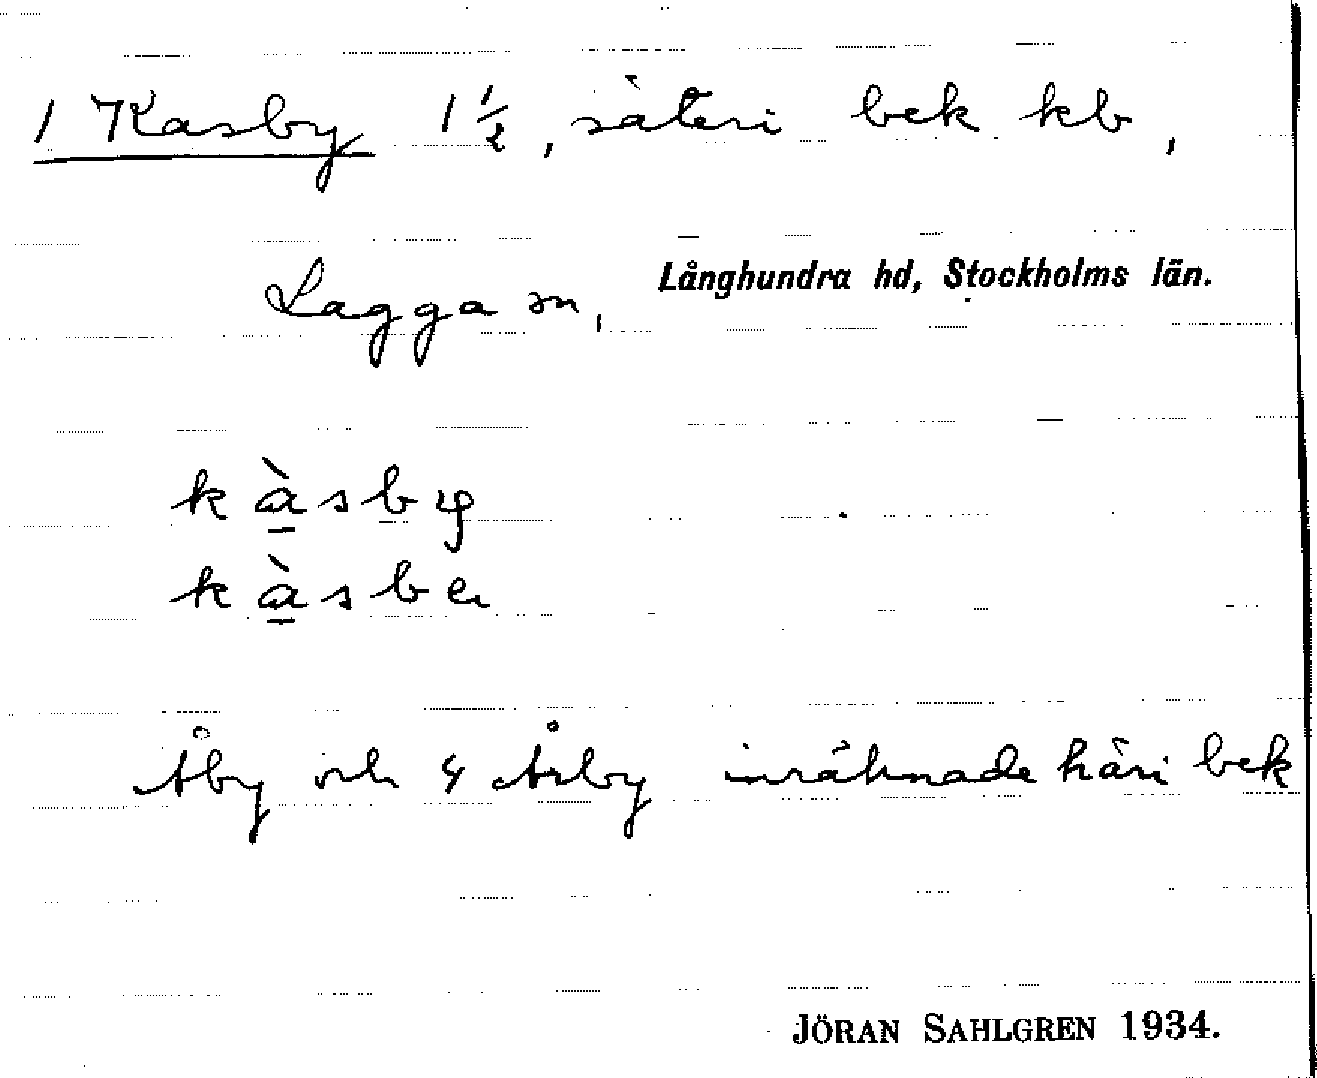 1 Kasby 1 1/2, säteri bek kb,
Lagga sn, Långhundra hd, Stockholms län.
kàsby
kàsbe
Åby och 4 Årby inräknade häri bek
JÖRAN SAHLGREN 1934.